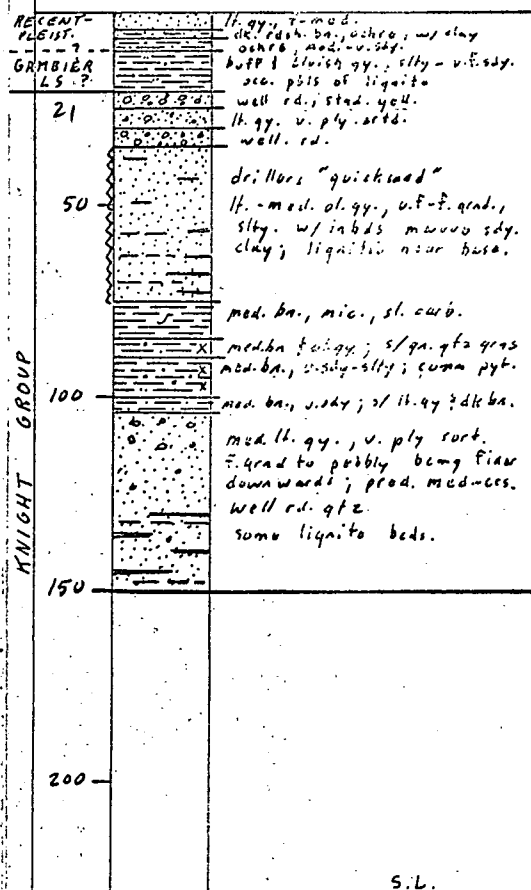 RECENT-
PLEIST.
?
GAMBIER
LS.?
21
50
100
150
200
KNIGHT GROUP
lt. gy., f-med.
dk. rdsh bn., ochre; w/ clay
ochre, med.-v.sdy.
buff & bluish gy., slty - v.f.sdy.
occ. pbls of lignite
well rd.; stnd. yell.
lt. gy. v. ply. srtd.
well. rd.
drillers "quicksand"
lt.-med. ol. gy., v.f-f. grnd.,
slty. w/ inbds mauve sdy.
clay; lignitic near base.
med. bn., mic., sl. carb.
med.bn & ol.gy; s/gn. qtz grns
med. bn., v.sdy-slty; comm pyt.
med. bn., v.sdy; s/ lt. gy & dk bn.
med. lt. gy., v. ply sort.
f. grnd to pebbly bcmg finer
downwards; pred. med-crs.
well rd. qtz
some lignite beds.
S.L.